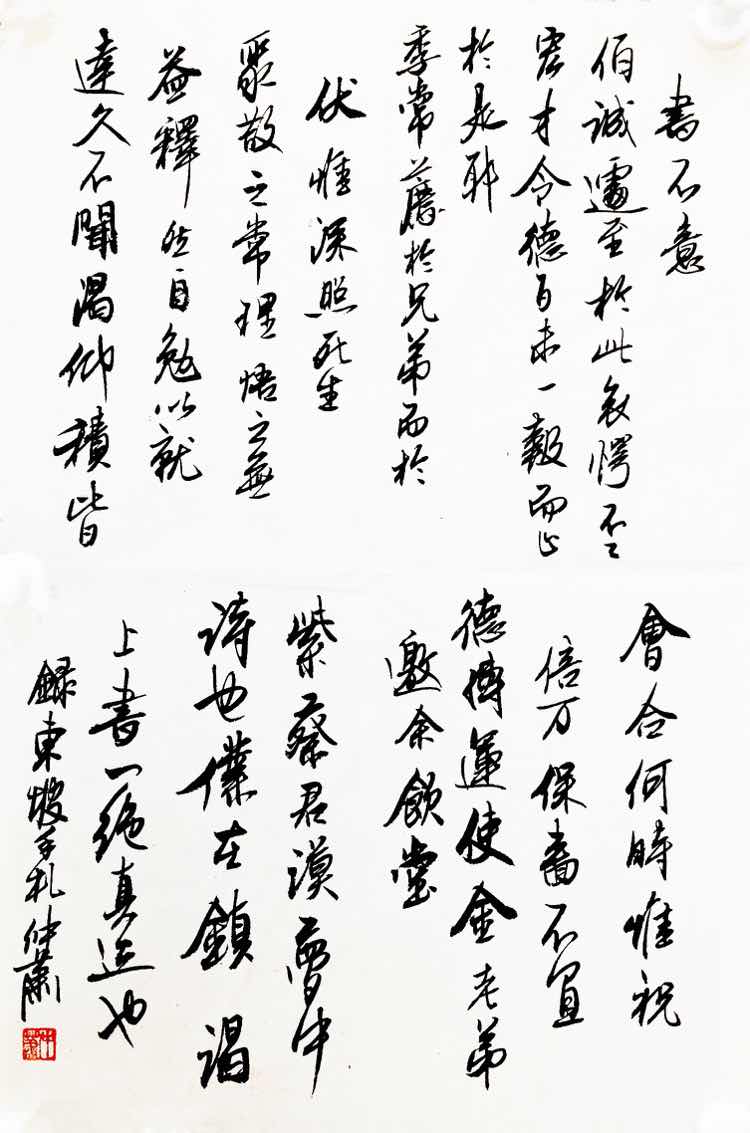 書不意
伯誠遽至於此哀愕不已
宏才令德百未一報而止
於是耶
季常篤於兄弟而於
伏惟深照死生
聚散之常理悟之無
益釋然自勉以就
達久不聞渴仰積皆
會合何時惟祝
倍万保嗇不宣
德搏運使金老弟
邀余飲堂
紫二蔡君謨夢中
詩也僕在錢 謁
上書一絕真迹也
錄東坡手札仲蕭